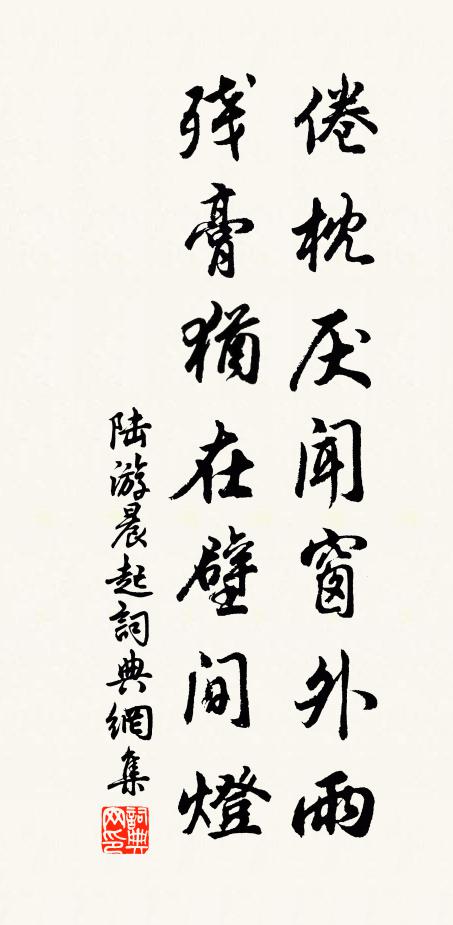 倦枕厌闻窗外雨
残膏犹在壁间燈
陆游晨起詞典網集
詞典网印